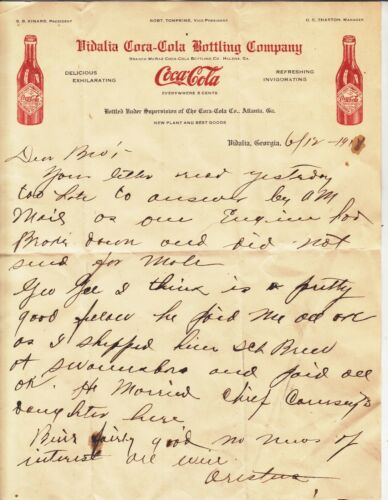 S. B. KINARD, PRESIDENT
ROBT. TOMPKINS, VICE-PRESIDENT
D. C. THAXTON, MANAGER
Vidalia Coca-Cola Bottling Company
BRANCH MCRAE COCA-COLA BOTTLING CO. HELENA, GA.
DELICIOUS
EXHILARATING
Coca-Cola
EVERYWHERE 5 CENTS
REFRESHING
INVIGORATING
Bottled Under Supervision of The Coca-Cola Co., Atlanta, Ga.
NEW PLANT AND BEST GOODS
Vidalia, Georgia, 6/12-191
Dear Bro:-
Your letter recd yesterday
too late to answer by AM
Mail as our Engine had
Broke down and did not
send for Mole
Geo I think is a pretty
good fellow he paid me all ok
as I shipped him Brew
at Swainsboro and paid all
ok. He Married Chief
daughter here
Bin's fairly good no news of
interest all well